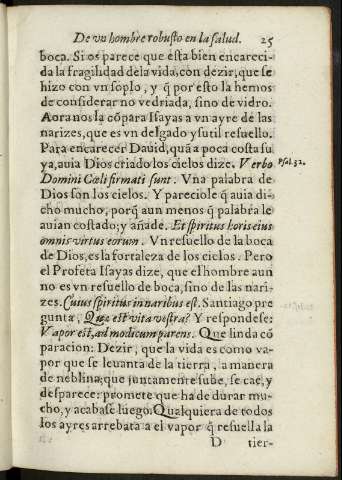 De vn hombre robusto en la salud. 25
boca. Si os parece que esta bien encareci-
da la fragilidad dela vida, con dezir, que se
hizo con vn soplo, y q̃ por esto la hemos
de considerar no vedriada, sino de vidro.
Aora nos la cõpara Isayas a vn ayre de las
narizes, que es vn delgado y sutil resuello.
Para encarecer Dauid, quã a poca costa su
ya, auia Dios criado los cielos dize. Verbo
Psal. 32.
Domini Cœli firmati sunt. Vna palabra de
Dios son los cielos. Y pareciole q̃ auia di-
cho mucho, porq̃ aun menos q̃ palabra le
auian costado; y añade. Et spiritus oris eius
omnis virtus eorum. Vn resuello de la boca
de Dios, es la fortaleza de los cielos. Pero
el Profeta Isayas dize, que el hombre aun
no es vn resuello de boca, sino de las nari-
zes. Cuius spiritus in naribus est. Santiago pre
gunta, Quæ est vita vestra? Y respondese:
Vapor est, ad modicum parens. Que linda cõ
paracion: Dezir, que la vida es como va-
por que se leuanta de la tierra, a manera
de neblina, que juntamente sube, se cae, y
desparece: promete que ha de durar mu-
cho, y acabase luego. Qualquiera de todos
los ayres arrebata a el vapor q̃ resuella la
D tier-